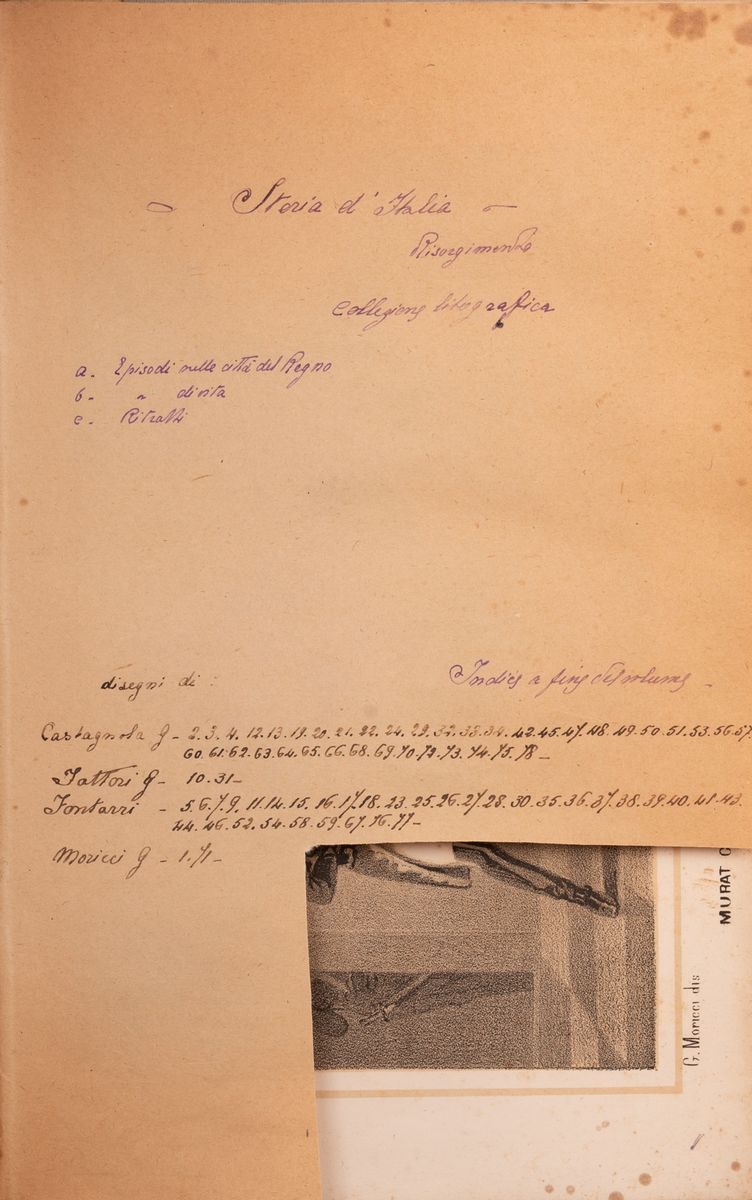 Storia d'Italia
Risorgimento
Collezione litografica
a. Episodi nelle città del Regno
b. " di vita
c. Ritratti
disegni di :
Indice a fine del volume
Castagnola G - 2. 3. 4. 12. 13. 19. 20. 21. 22. 24. 29. 32. 33. 34. 42. 45. 47. 48. 49. 50. 51. 53. 56. 57.
60. 61. 62. 63. 64. 65. 66. 68. 69. 70. 72. 73. 74. 75. 78 -
Fattori G - 10. 31 -
Fontarri - 5. 6. 7. 9. 11. 14. 15. 16. 17. 18. 23. 25. 26. 27. 28. 30. 35. 36. 37. 38. 39. 40. 41. 43.
44. 46. 52. 54. 58. 59. 67. 76. 77 -
Moricci G - 1. 71 -
MURAT G
G. Moricci dis